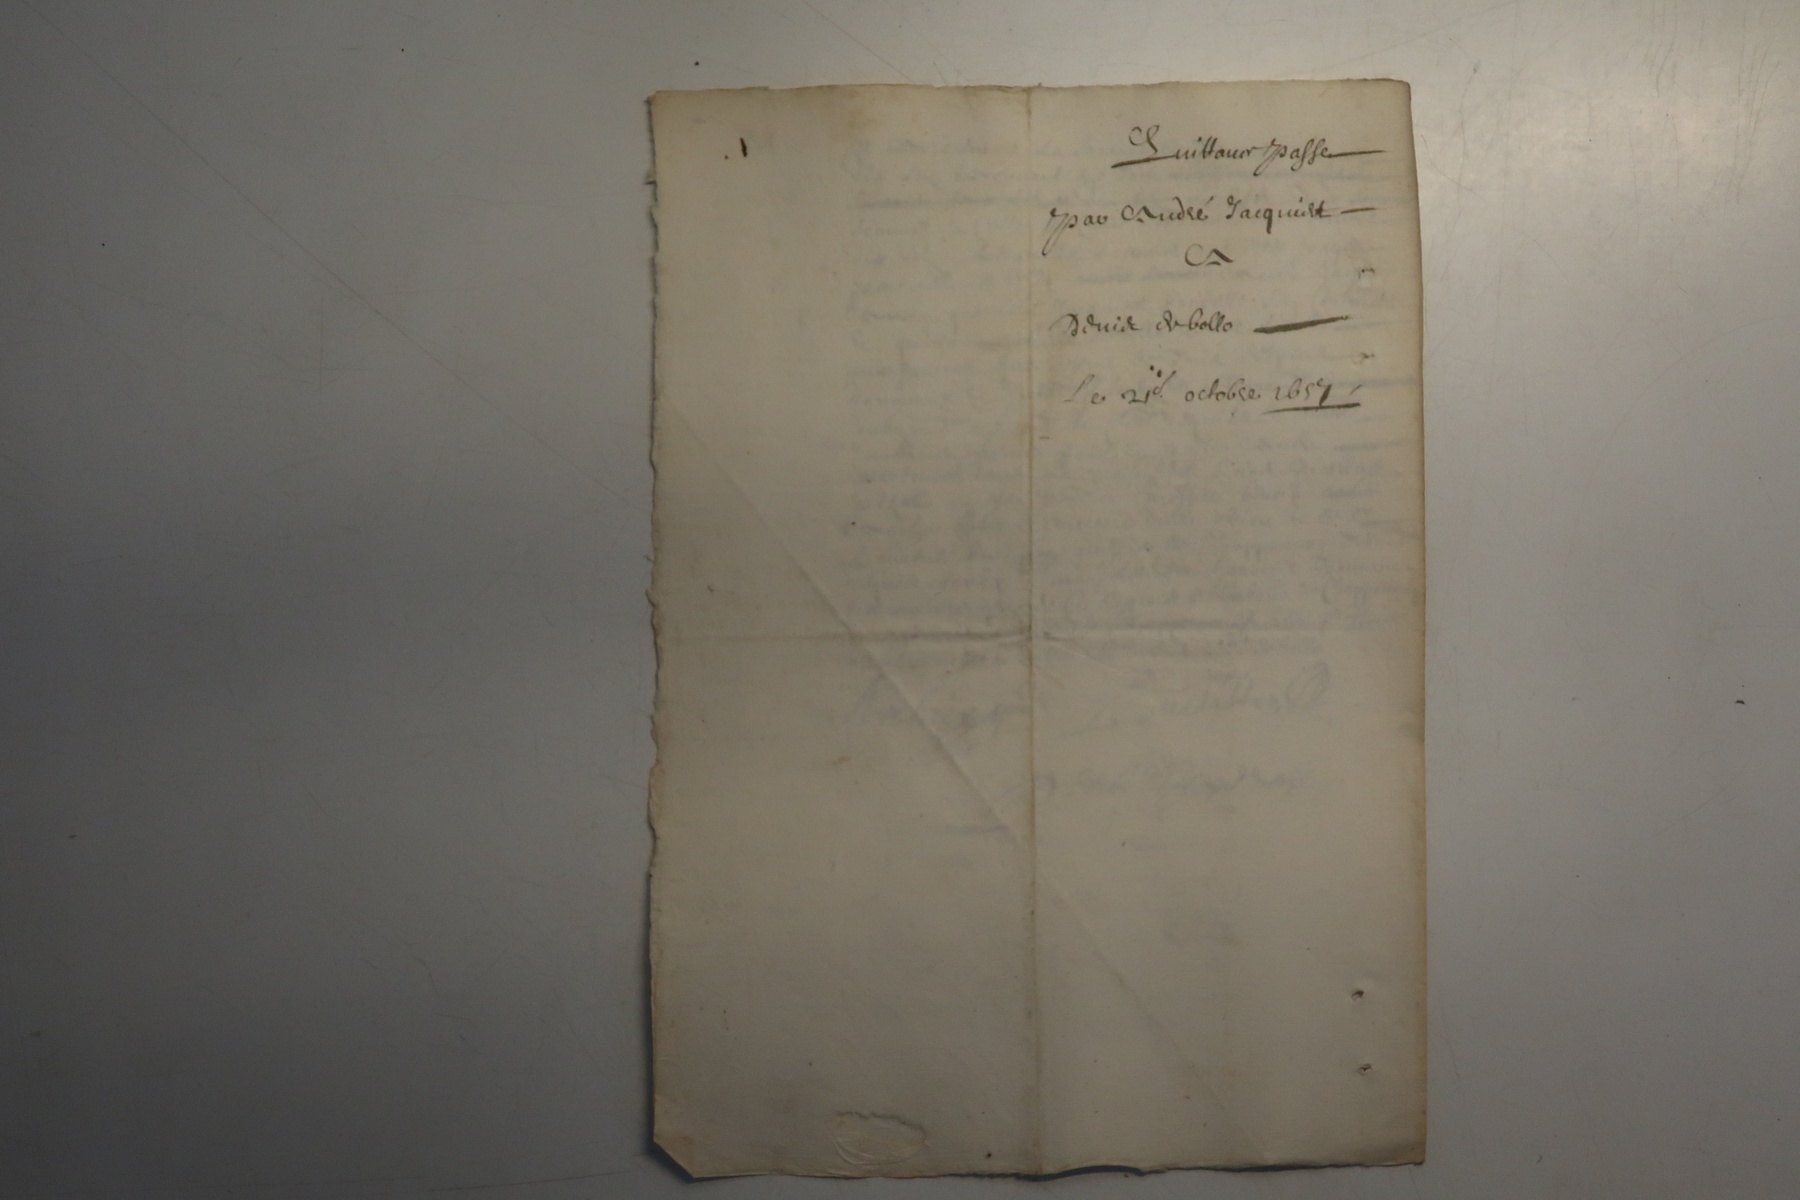 Quittance passe
par André Jacquiet
A
Denis debollo
Le 21e octobre 1657